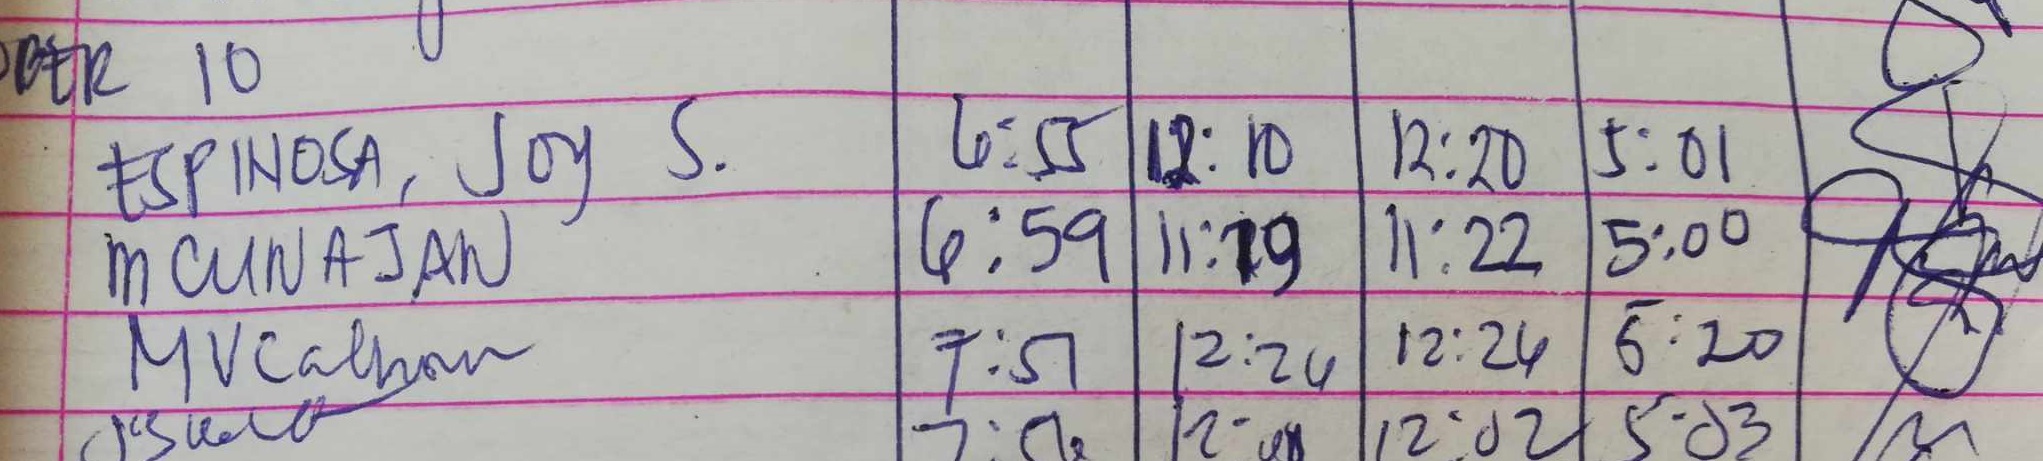 10
ESPINOSA, Joy S. 6:55 12:10 12:20 5:01
MCUNAJAN 6:59 11:19 11:22 5:00
MVCalhoun 7:51 12:24 12:24 5:20
12:02 5:03